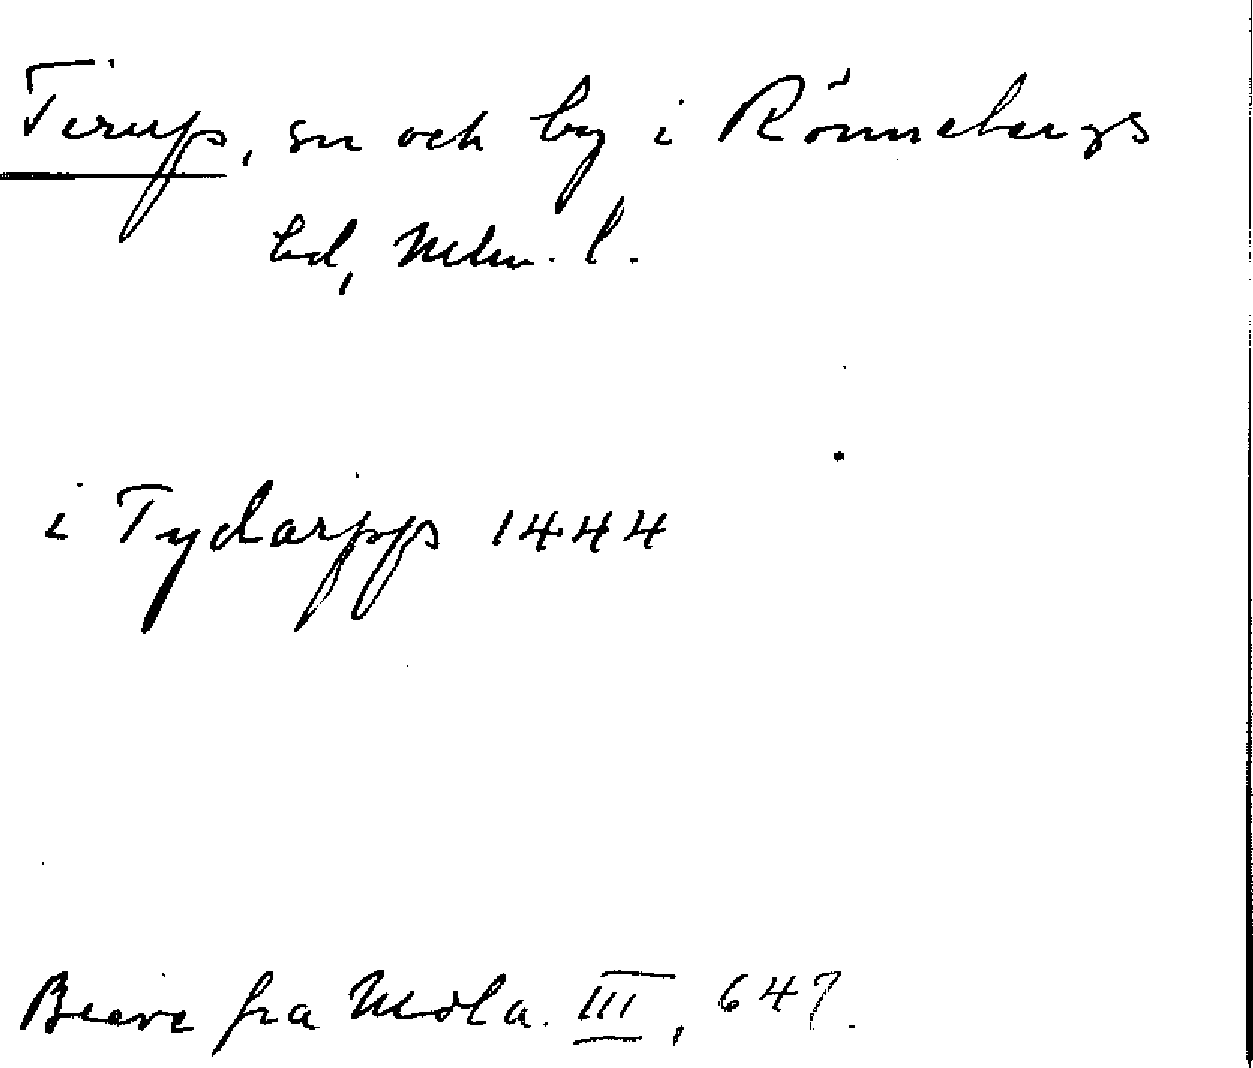 Tirup, sn och by i Rönnebergs
hd, Mlm. l.
i Tydarpp 1444
Breve fra Mdla. III, 647.